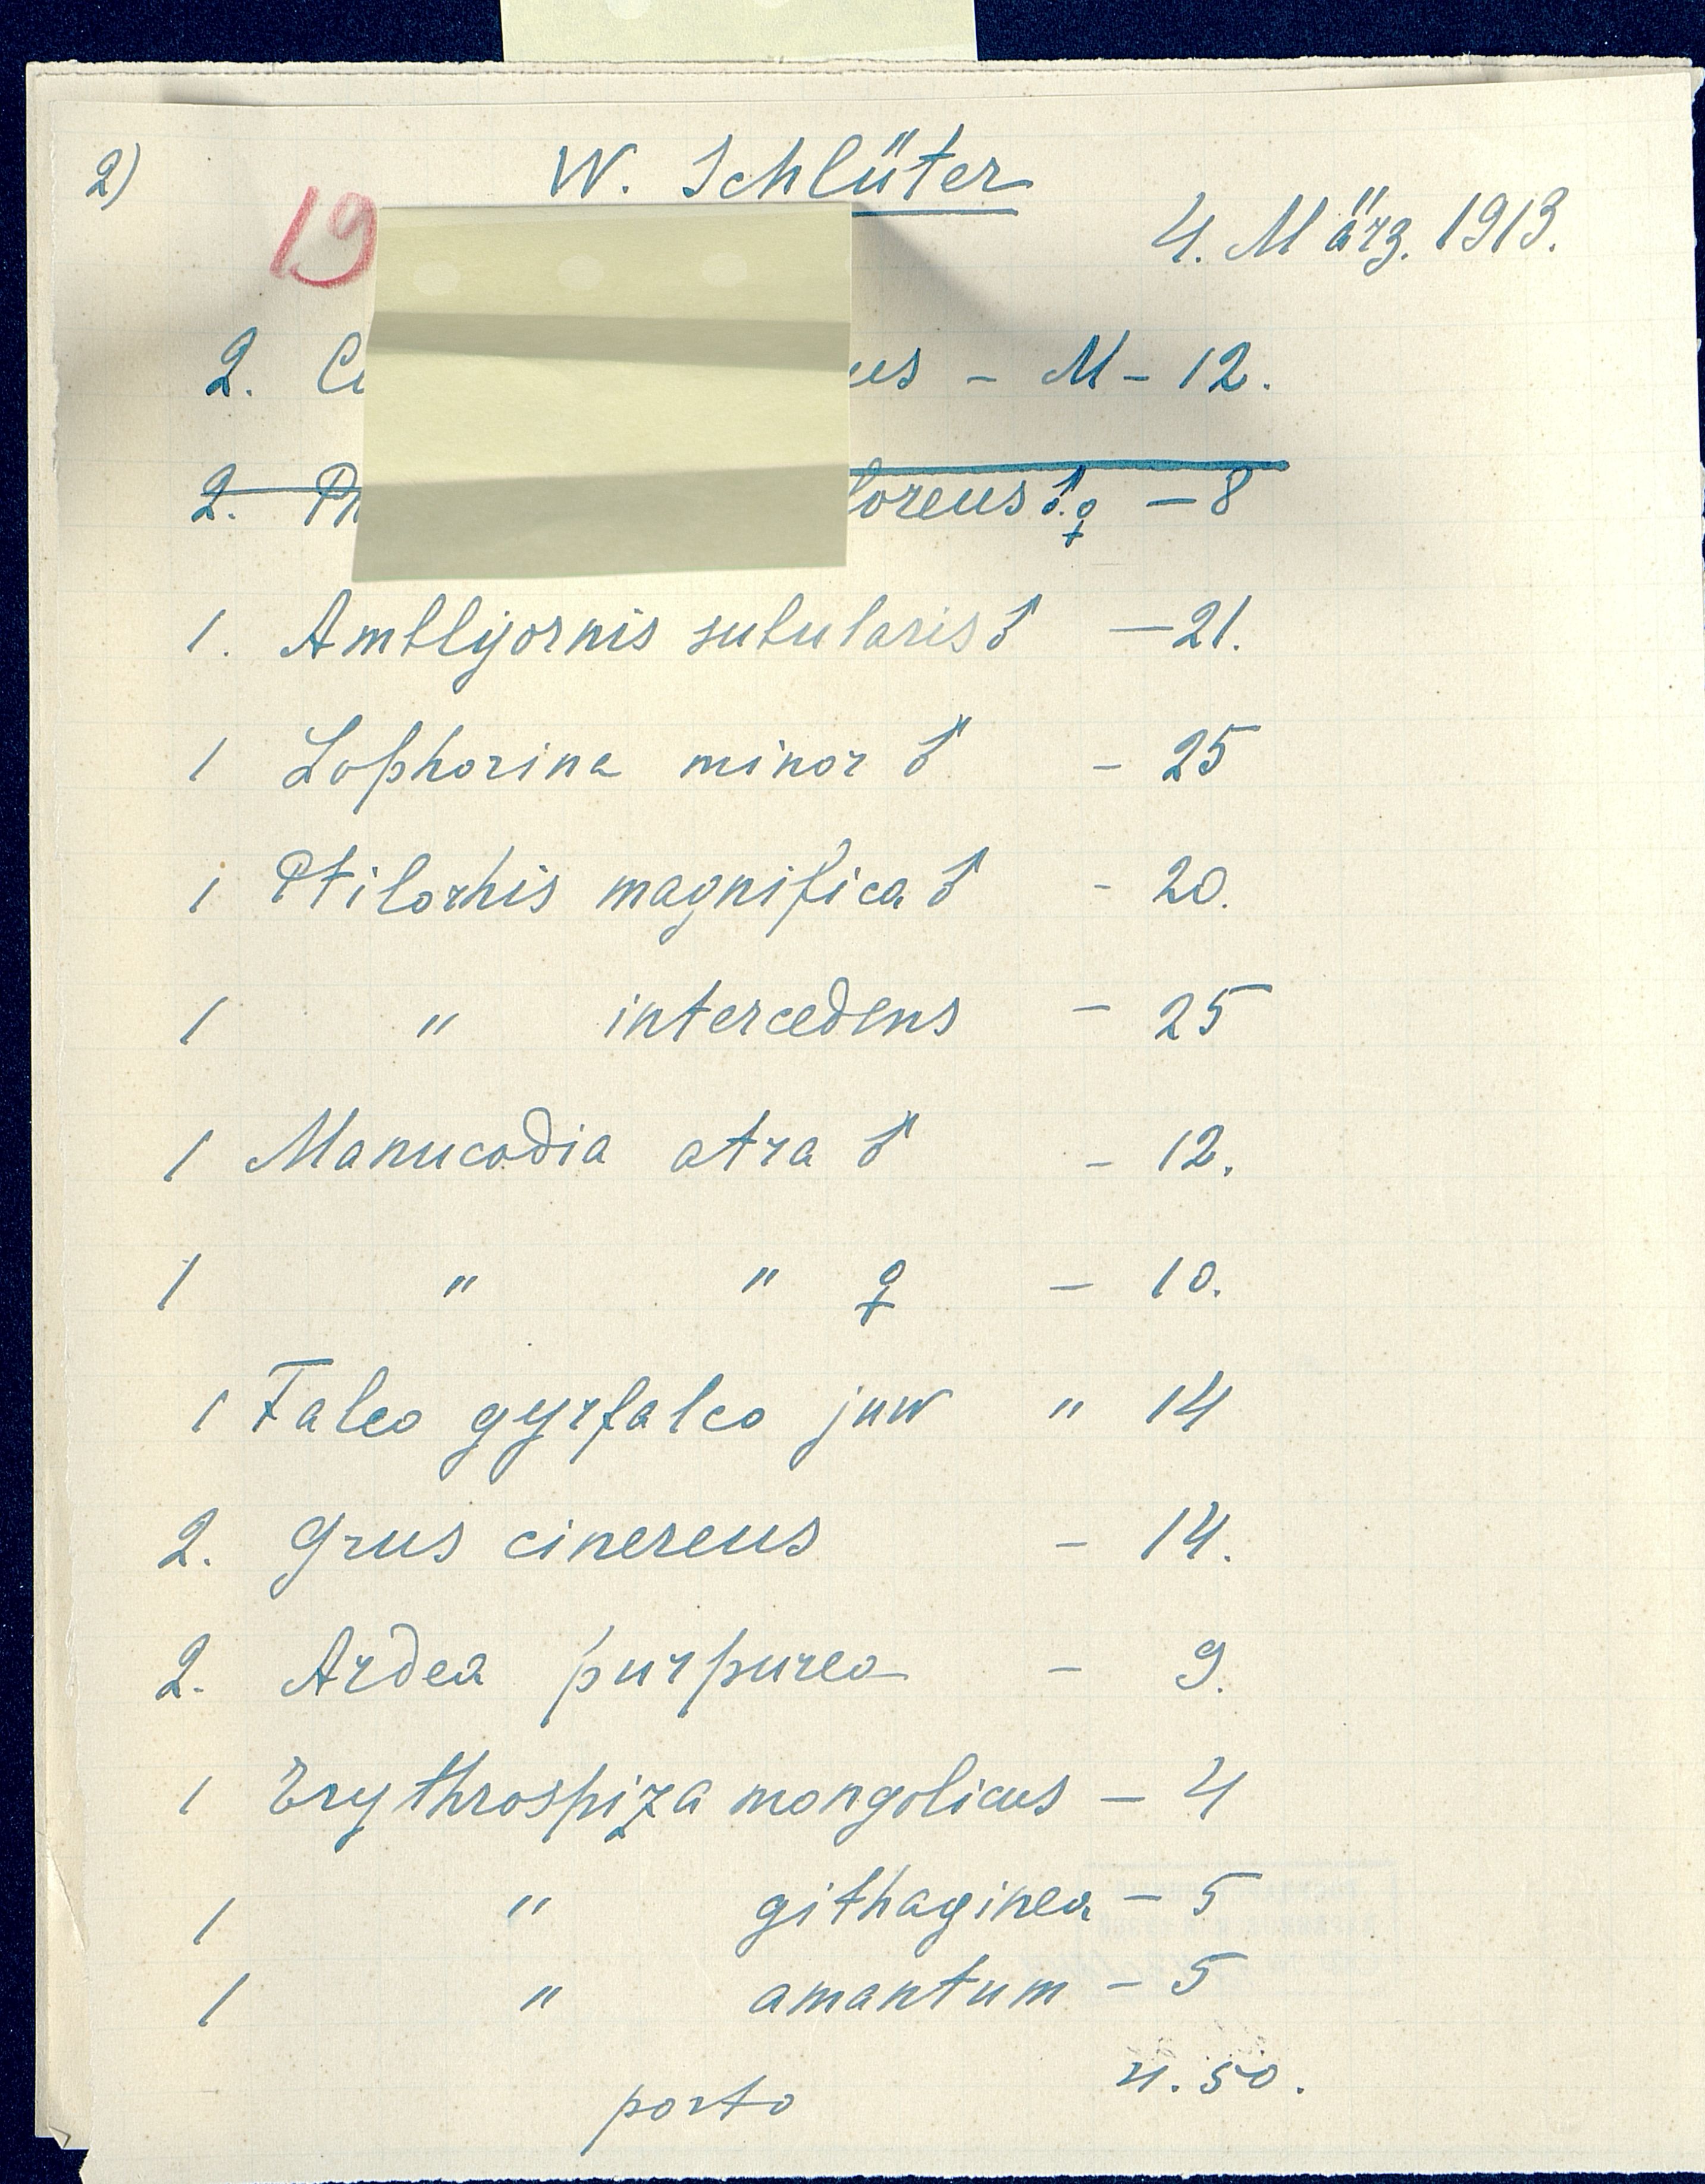 2) W. Schlüter
19 4. März. 1913.
2. us – M – 12.
2. loreus ♂.♀ – 8
1. Amblyornis subularis ♂ – 21.
1 Lophorina minor ♂ – 25
1 Ptilorhis magnifica ♂ - 20.
1 " intercedens – 25
1 Manucodia atra ♂ – 12.
1 " " ♀ – 10.
1 Falco gyrfalco juv " 14
2. Grus cinereus – 14.
2. Ardea purpurea – 9.
1 Erythrospiza mongolicus – 4
1 " githaginea – 5
1 " amantum – 5
porto 4.50.